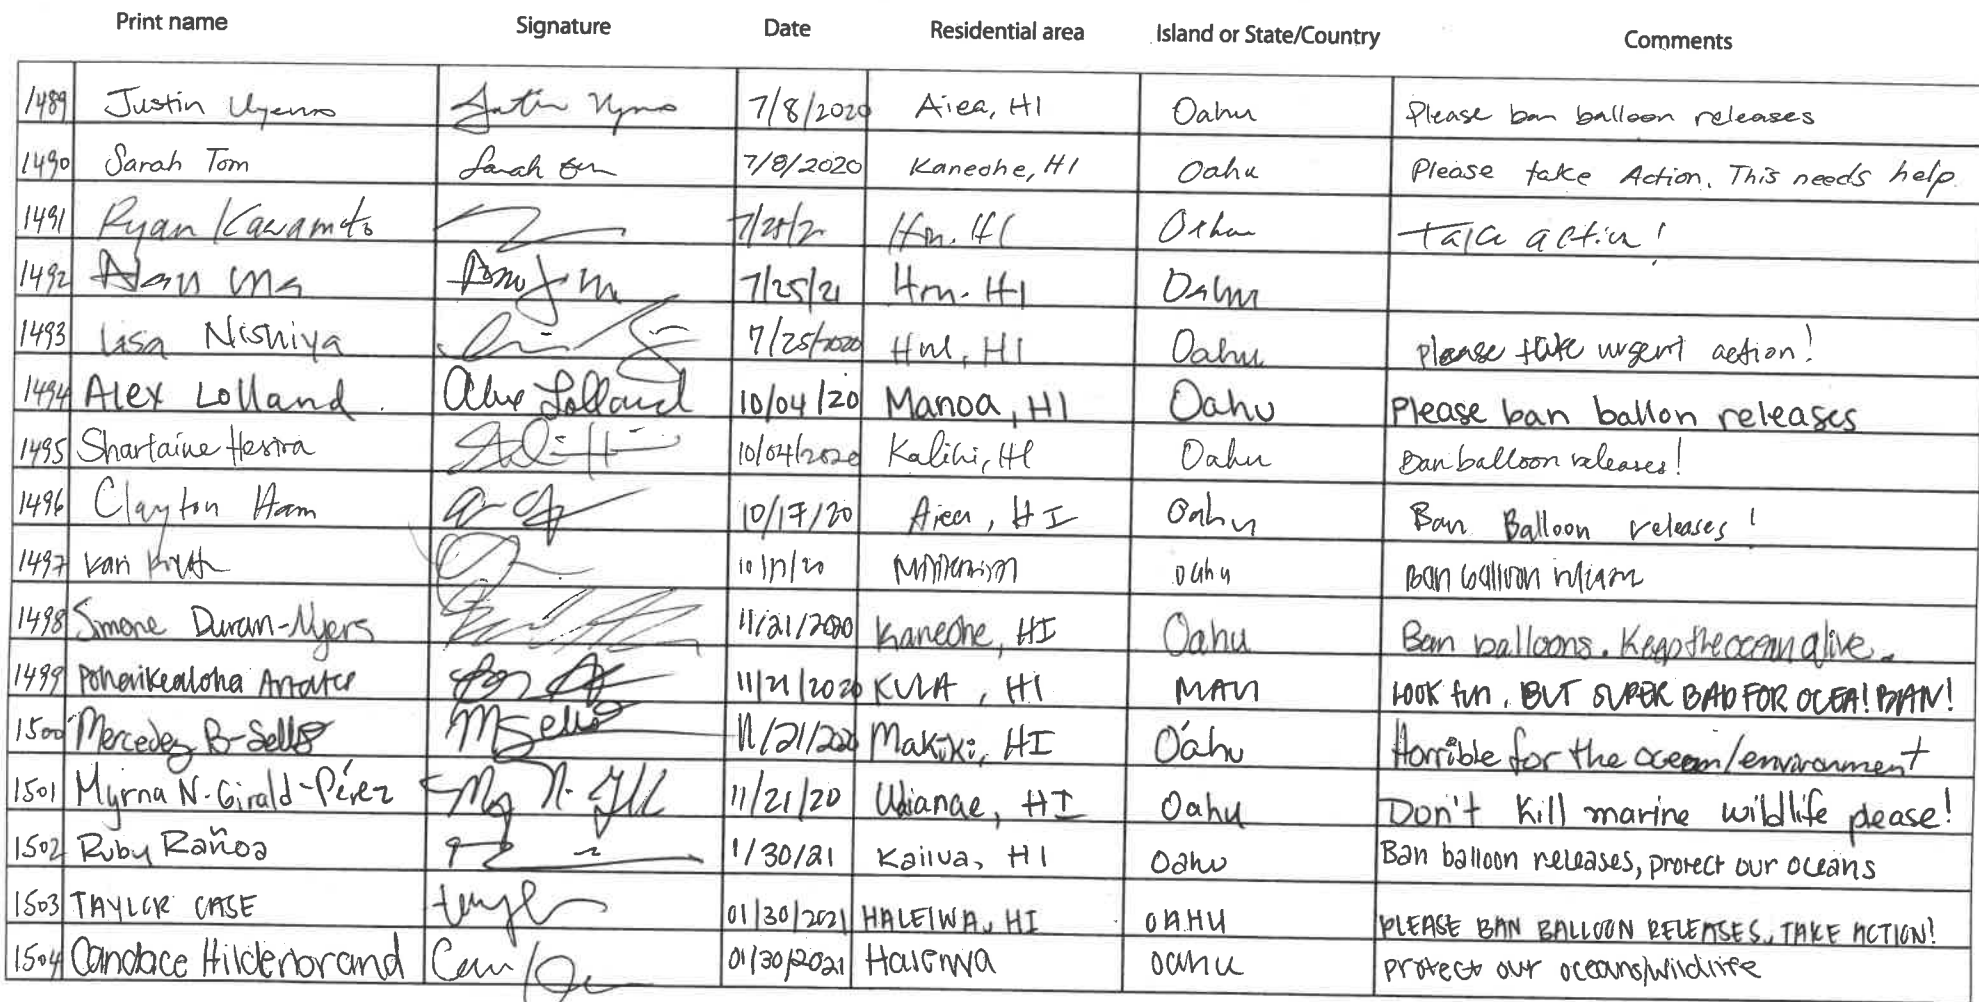 Print name Signature Date Residential area Island or State/Country Comments
1489 Justin Uyeno 7/8/2020 Aiea, HI Oahu Please ban balloon releases
1490 Sarah Tom Sarah 7/8/2020 Kaneohe, HI Oahu Please take Action. This needs help.
1491 Ryan Kawamoto Hn. HI Oahu Take action!
1492 Alan Ma 7/25/21 Hn. HI Oahu
1493 Lisa Nishiya 7/25/2020 Hnl, HI Oahu Please take urgent action!
1494 Alex Lolland Alex Lolland 10/04/20 Manoa, HI Oahu Please ban ballon releases
1495 Shartaine 10/04/2020 Kalihi, HI Oahu Ban balloon releases!
1496 Clayton Ham 10/17/20 Aiea, HI Oahu Ban Balloon releases!
1497 Kari 10/17/20 Oahu Ban balloon
1498 Simone Duran-Myers 11/21/2020 Kaneohe, HI Oahu Ban balloons. Keep the ocean alive.
1499 11/21/2020 KULA, HI MAUI LOOK fun, BUT SUPER BAD FOR OCEA! BAN!
1500 Mercedez B-Sells MSells 11/21/2020 Makiki, HI O'ahu Horrible for the ocean/environment
1501 Myrna N. Girald-Pérez 11/21/20 Waianae, HI Oahu Don't kill marine wildlife please!
1502 Ruby Rañoa 1/30/21 Kailua, HI Oahu Ban balloon releases, protect our oceans
1503 TAYLOR CASE 01/30/2021 HALEIWA, HI OAHU PLEASE BAN BALLOON RELEASES, TAKE ACTION!
1504 Candace Hildenbrand 01/30/2021 Haleiwa oahu protect our oceans/wildlife